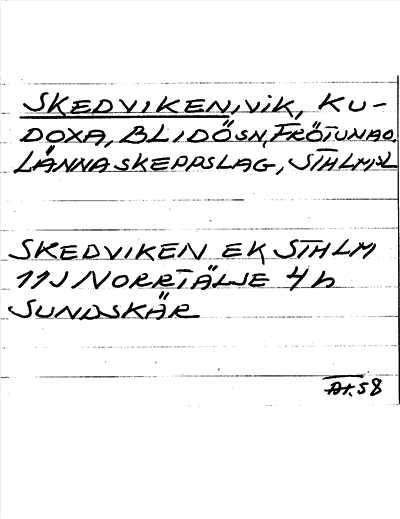 SKEDVIKEN, VIK, KU-
DOXA, BLIDÖSN, FRÖTUNAO.
LÄNNA SKEPPSLAG, STHLMSL
SKEDVIKEN EK, STHLM
11J NORRTÄLJE 4h
SUNDSKÄR
58